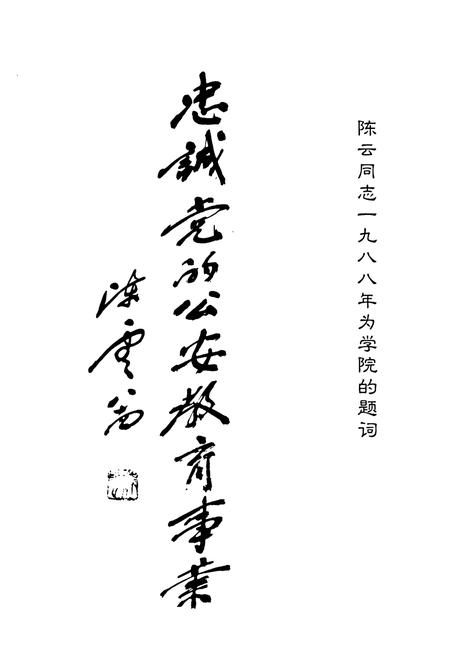 陈云同志一九八八年为学院的题词
忠誠党的公安教育事業
陈雲